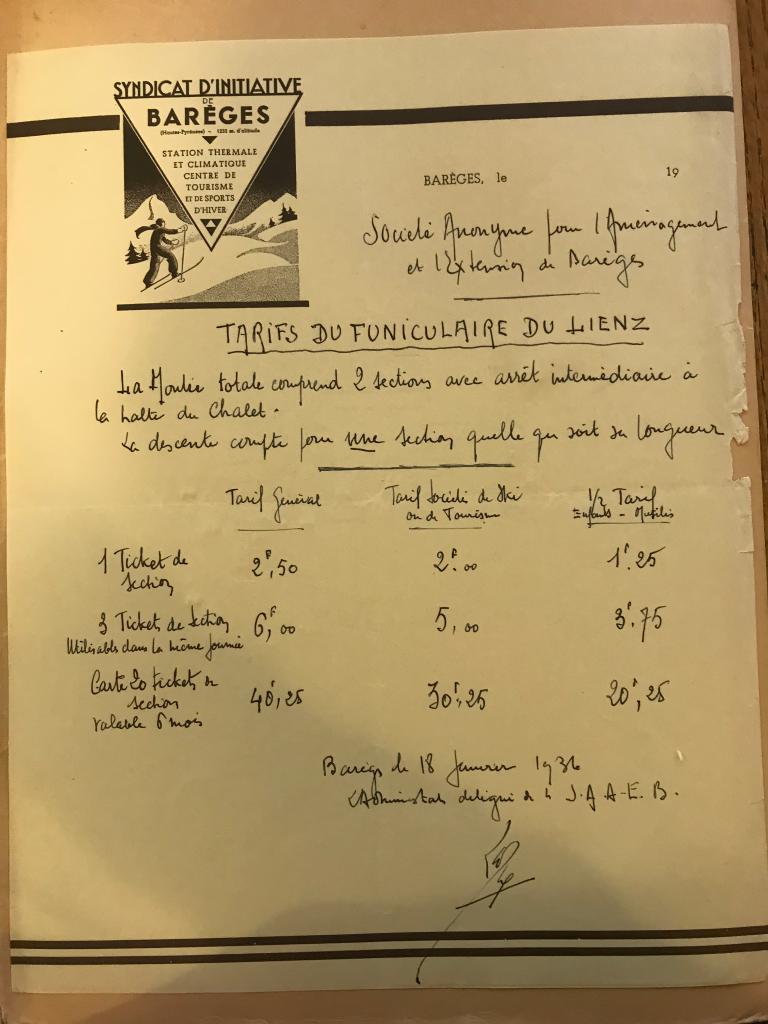 SYNDICAT D'INITIATIVE
DE
BARÈGES
(Hautes-Pyrénées) - 1232 m. d'altitude
STATION THERMALE
ET CLIMATIQUE
CENTRE DE
TOURISME
ET DE SPORTS
D'HIVER
BARÈGES, le 19
Société Anonyme pour l'Aménagement
et l'Extension de Barèges
TARIFS DU FUNICULAIRE DU LIENZ
La Montée totale comprend 2 sections avec arrêt intermédiaire à
la halte du Chalet.
La descente compte pour une section quelle que soit sa longueur
Tarif Général Tarif Société de Ski 1/2 Tarif
ou de Tourisme Enfants - Mutilés
1 Ticket de 2F,50 2F.00 1F.25
section
3 Tickets de section 6F,00 5,00 3F.75
Utilisables dans la même journée
Carte 20 tickets de 40F,25 30F,25 20F,25
section
valable 6 mois
Barèges le 18 Janvier 1936
L'Administrateur délégué de la S.A.A.E.B.